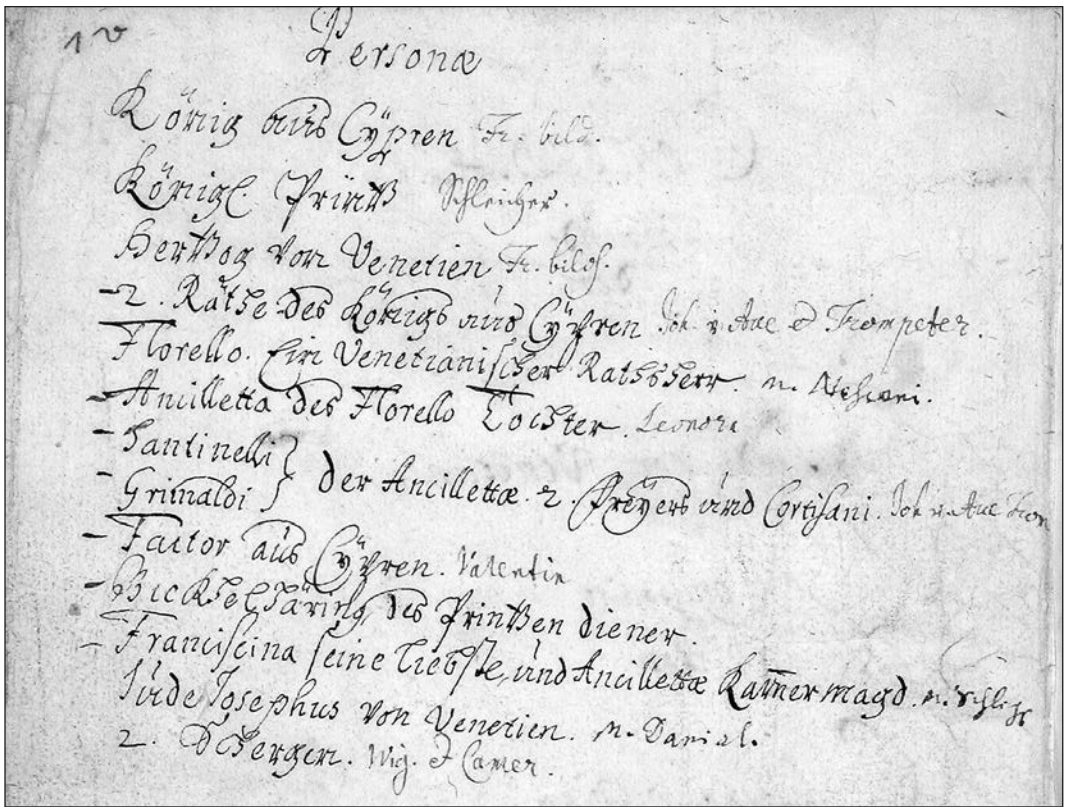 1v
Personæ
König aus Cypren Fr. bild.
Königl Printz Schleicher.
Hertzog von Venetien Fr. bild.
-2. Räthe des Königs aus Cypren Joh v Aue et Trompeter.
Florello. Ein Venetianischer Rathsherr. m.
- Ancilletta des Florello Tochter. Leonora
- Santinelli }
- Grimaldi } der Ancillettæ. 2. Freyers und Cortisani. Joh v. Aue Trom
- Factor aus Cypren. Valentin
- Bickelhäring des Printzen diener.
- Franciscina seine liebste, und Ancillettæ Kam̄ermagd. m.
Jude Josephus von Venetien. m. Daniel.
2. Schergen. Wig. et Camer.